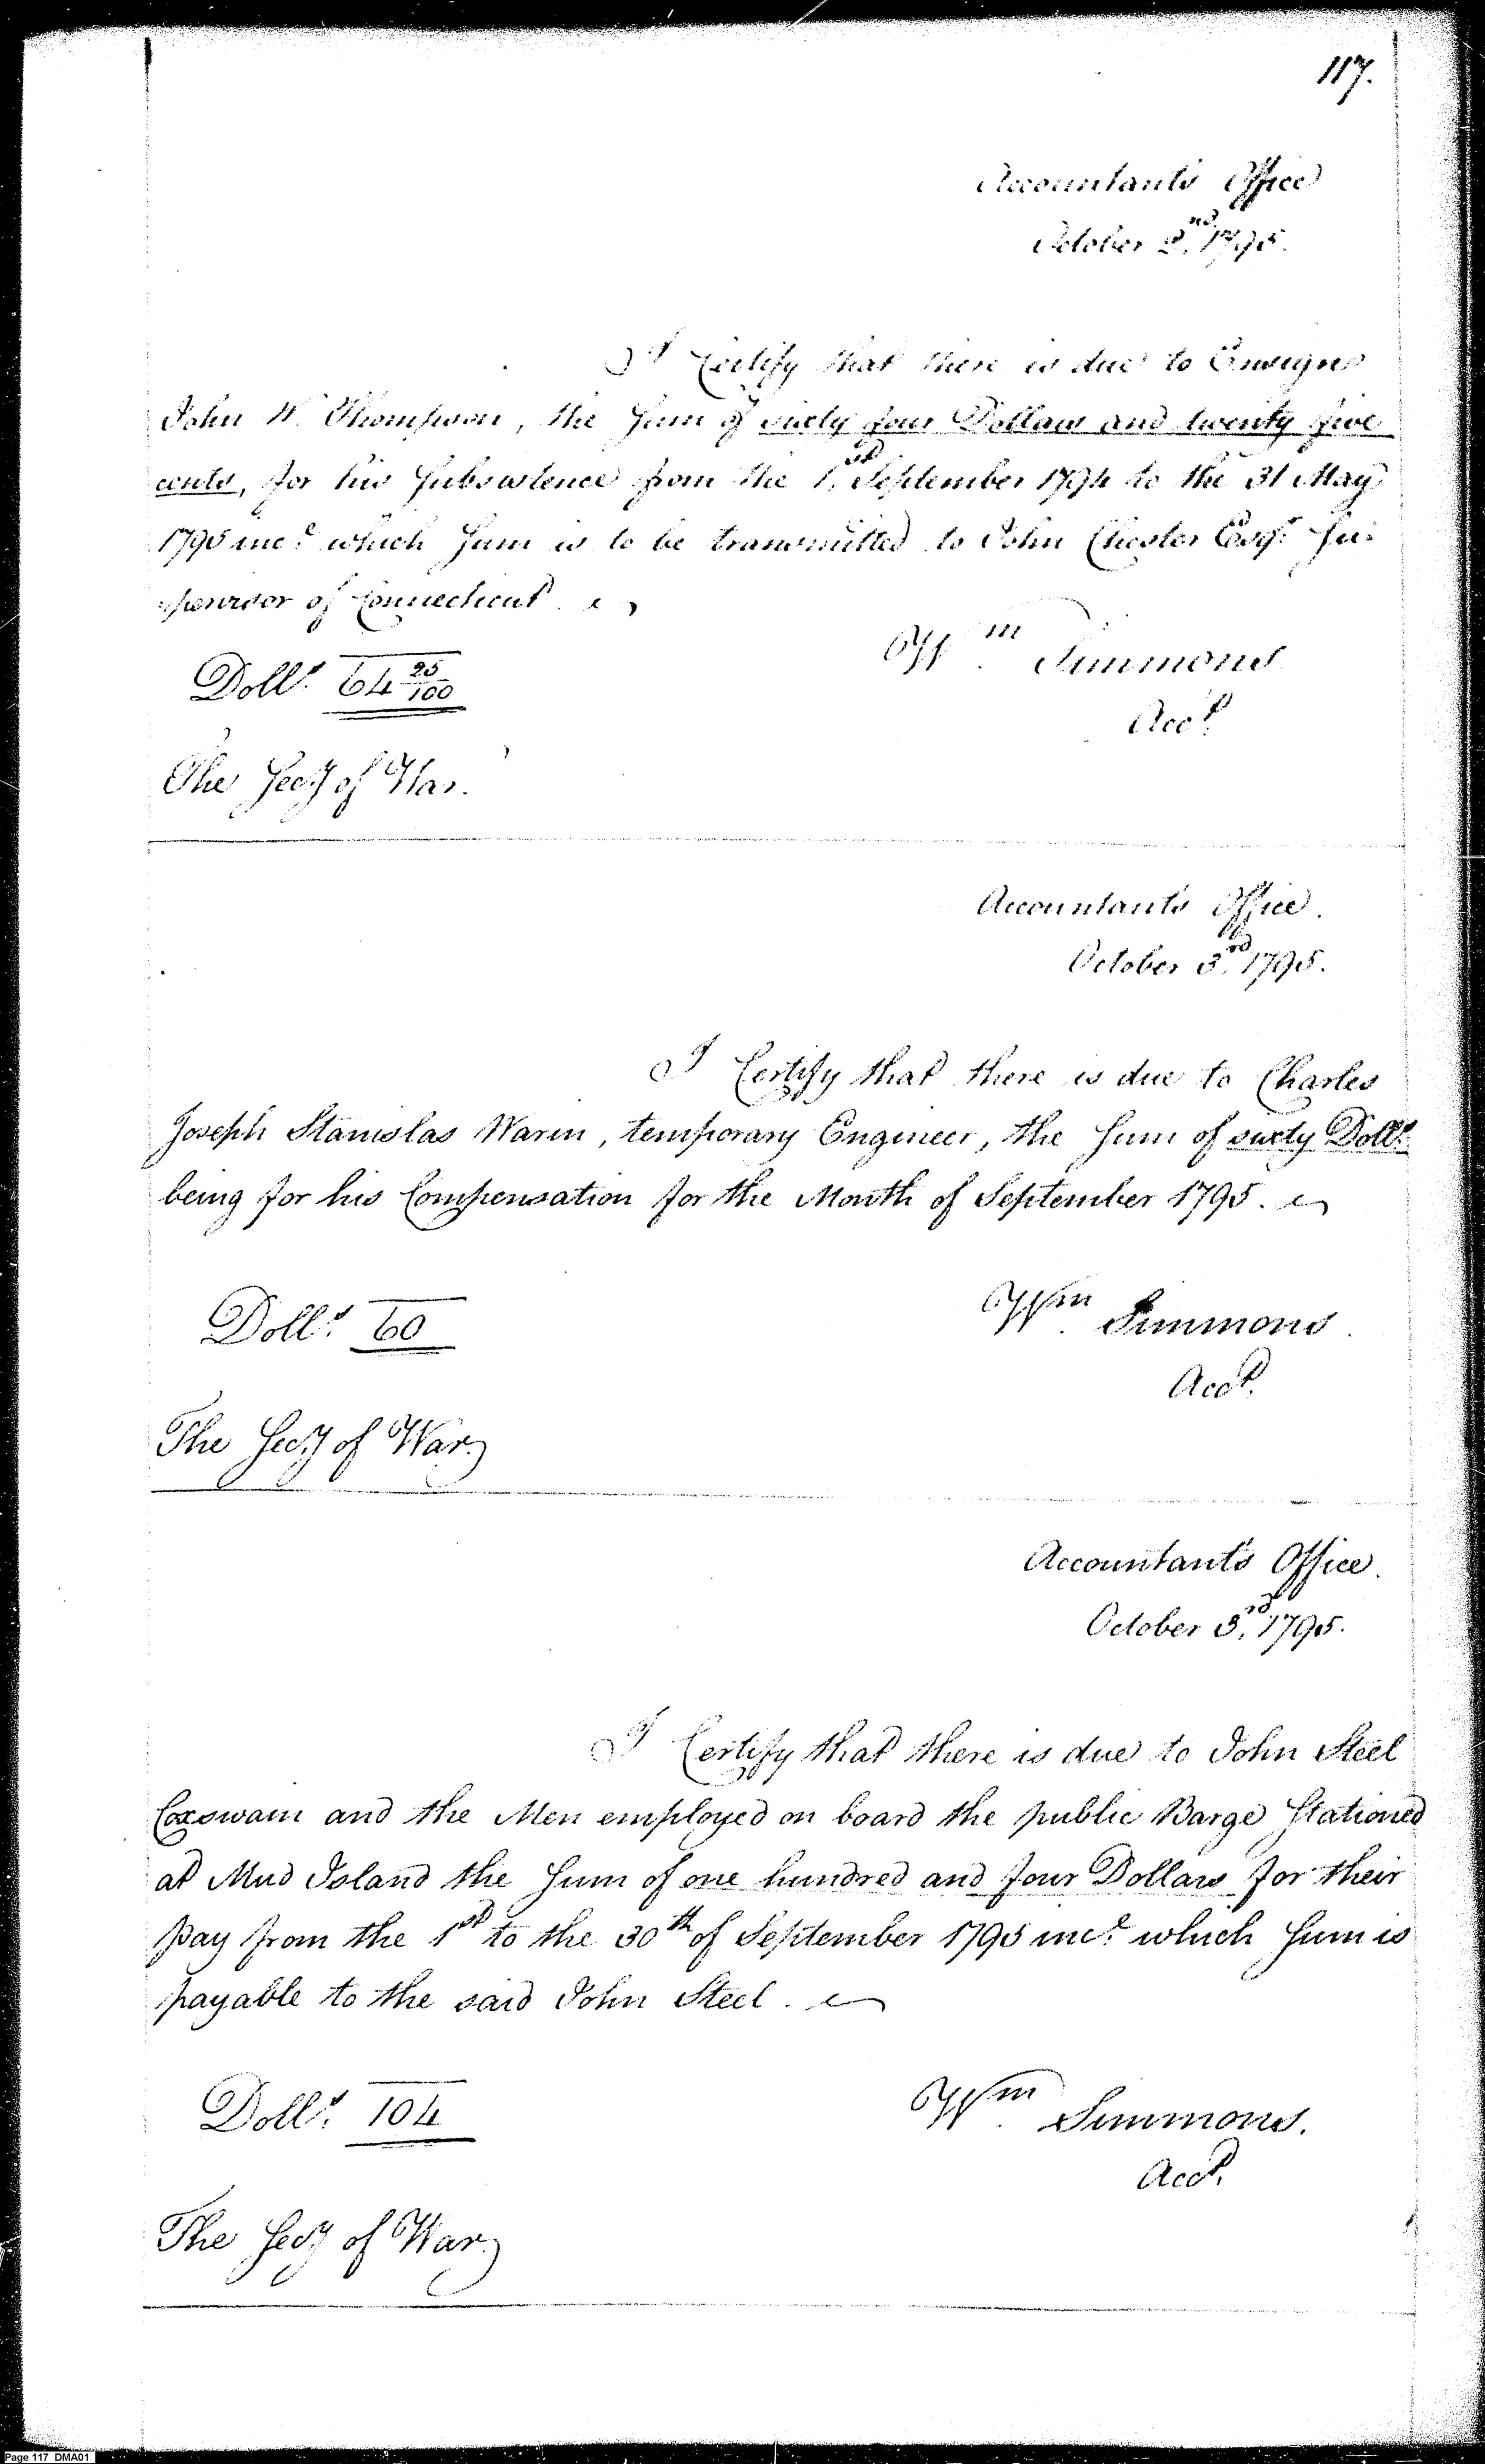 117.
Accountant's Office
October 2nd, 1795.
I Certify that there is due to Ensign
John W. Thompson, the Sum of sixty four Dollars and twenty five
cents, for his Subsistence from the 1st September 1794 to the 31 May
1795 incl. which Sum is to be transmitted to John Chester Esqr. Su-
-pervisor of Connecticut.
Dolls. 64 25/100
Wm Simmons
Acct.
The Secy of War.
Accountant's Office.
October 3rd, 1795.
I Certify that there is due to Charles
Joseph Stanislas Warin, temporary Engineer, the Sum of sixty Dolls.
being for his Compensation for the Month of September 1795.
Dolls. 60
Wm. Simmons.
Acct.
The Secy of War.
Accountant's Office.
October 3rd, 1795.
I Certify that there is due to John Steel
Coxswain and the Men employed on board the public Barge Stationed
at Mud Island the Sum of one hundred and four Dollars for their
pay from the 1st to the 30th of September 1795 incl. which Sum is
payable to the said John Steel.
Dolls. 104
Wm. Simmons.
Acct.
The Secy of War.
Page 117 DMA01